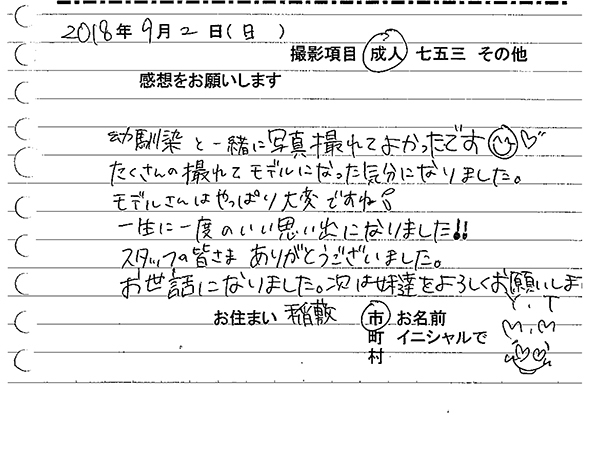 2018年9月2日(日　)
撮影項目 成人 七五三 その他
感想をお願いします
幼馴染と一緒に写真撮れてよかったです
たくさんの撮れてモデルになった気分になりました。
モデルさんはやっぱり大変ですね
一生に一度のいい思い出になりました!!
スタッフの皆さま ありがとうございました。
お世話になりました。次は妹達をよろしくお願いしま
Y.T
お住まい 稲敷 市 お名前
M.M
町 イニシャルで
村